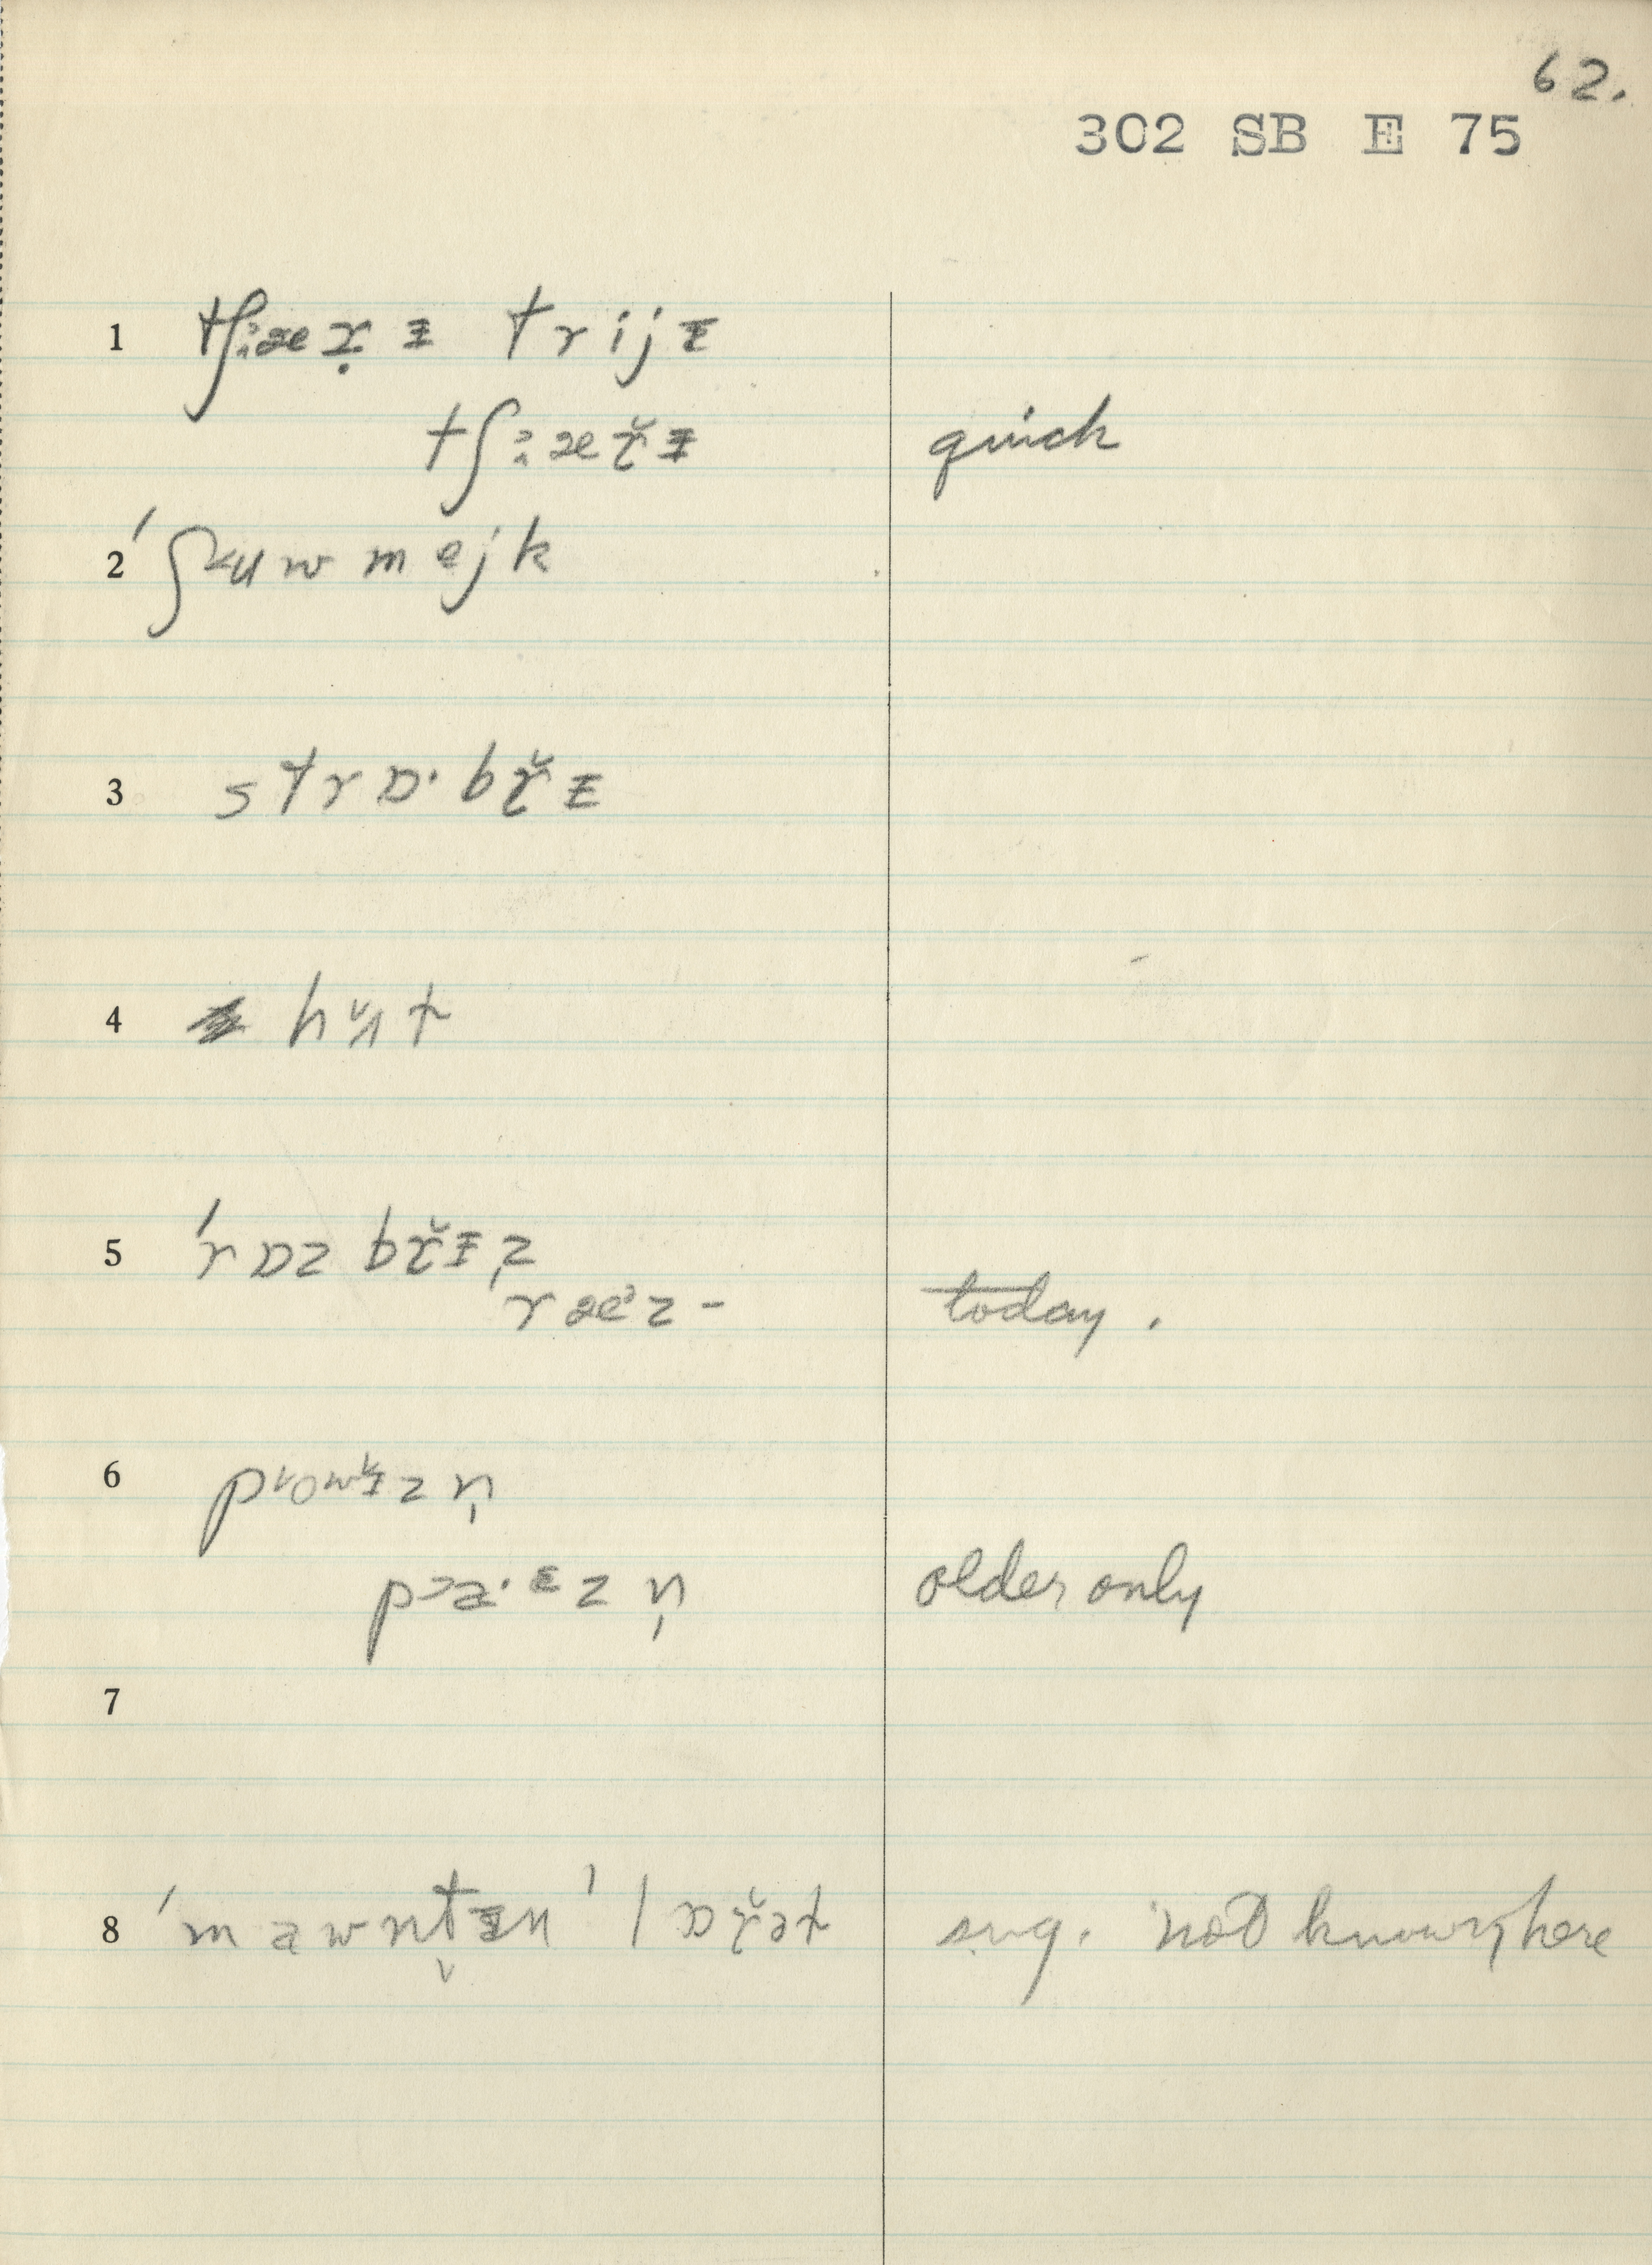 62.
302 SB E 75
1 tʃɜæɤ̣ᵻ trijᵻ
tʃɜæɤ̆ᵻ quick
2 ˈʃʉwmejk
3 strɒ·bɤ̆ᵻ
4 hʌ̆t
5 ˈrɒzbɤ̆ᵻz
ræᵊz - today .
6 powᵻzn̩
pɔə·ᵻzn̩ older only
7
8 ˈmawntᵻn ˈlɒɤ̆ət sug. not known here